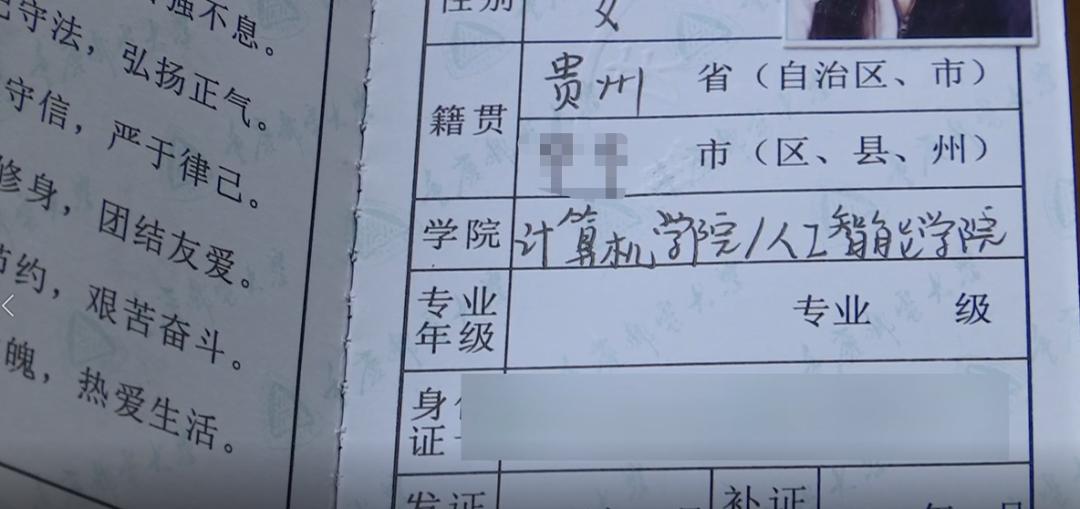 强不息。
守法，弘扬正气。
守信，严于律己。
修身，团结友爱。
节约，艰苦奋斗。
魄，热爱生活。
性别 女
籍贯 贵州 省（自治区、市）
市（区、县、州）
学院 计算机学院/人工智能学院
专业年级 专业 级
身份证
发证 补证 年 月